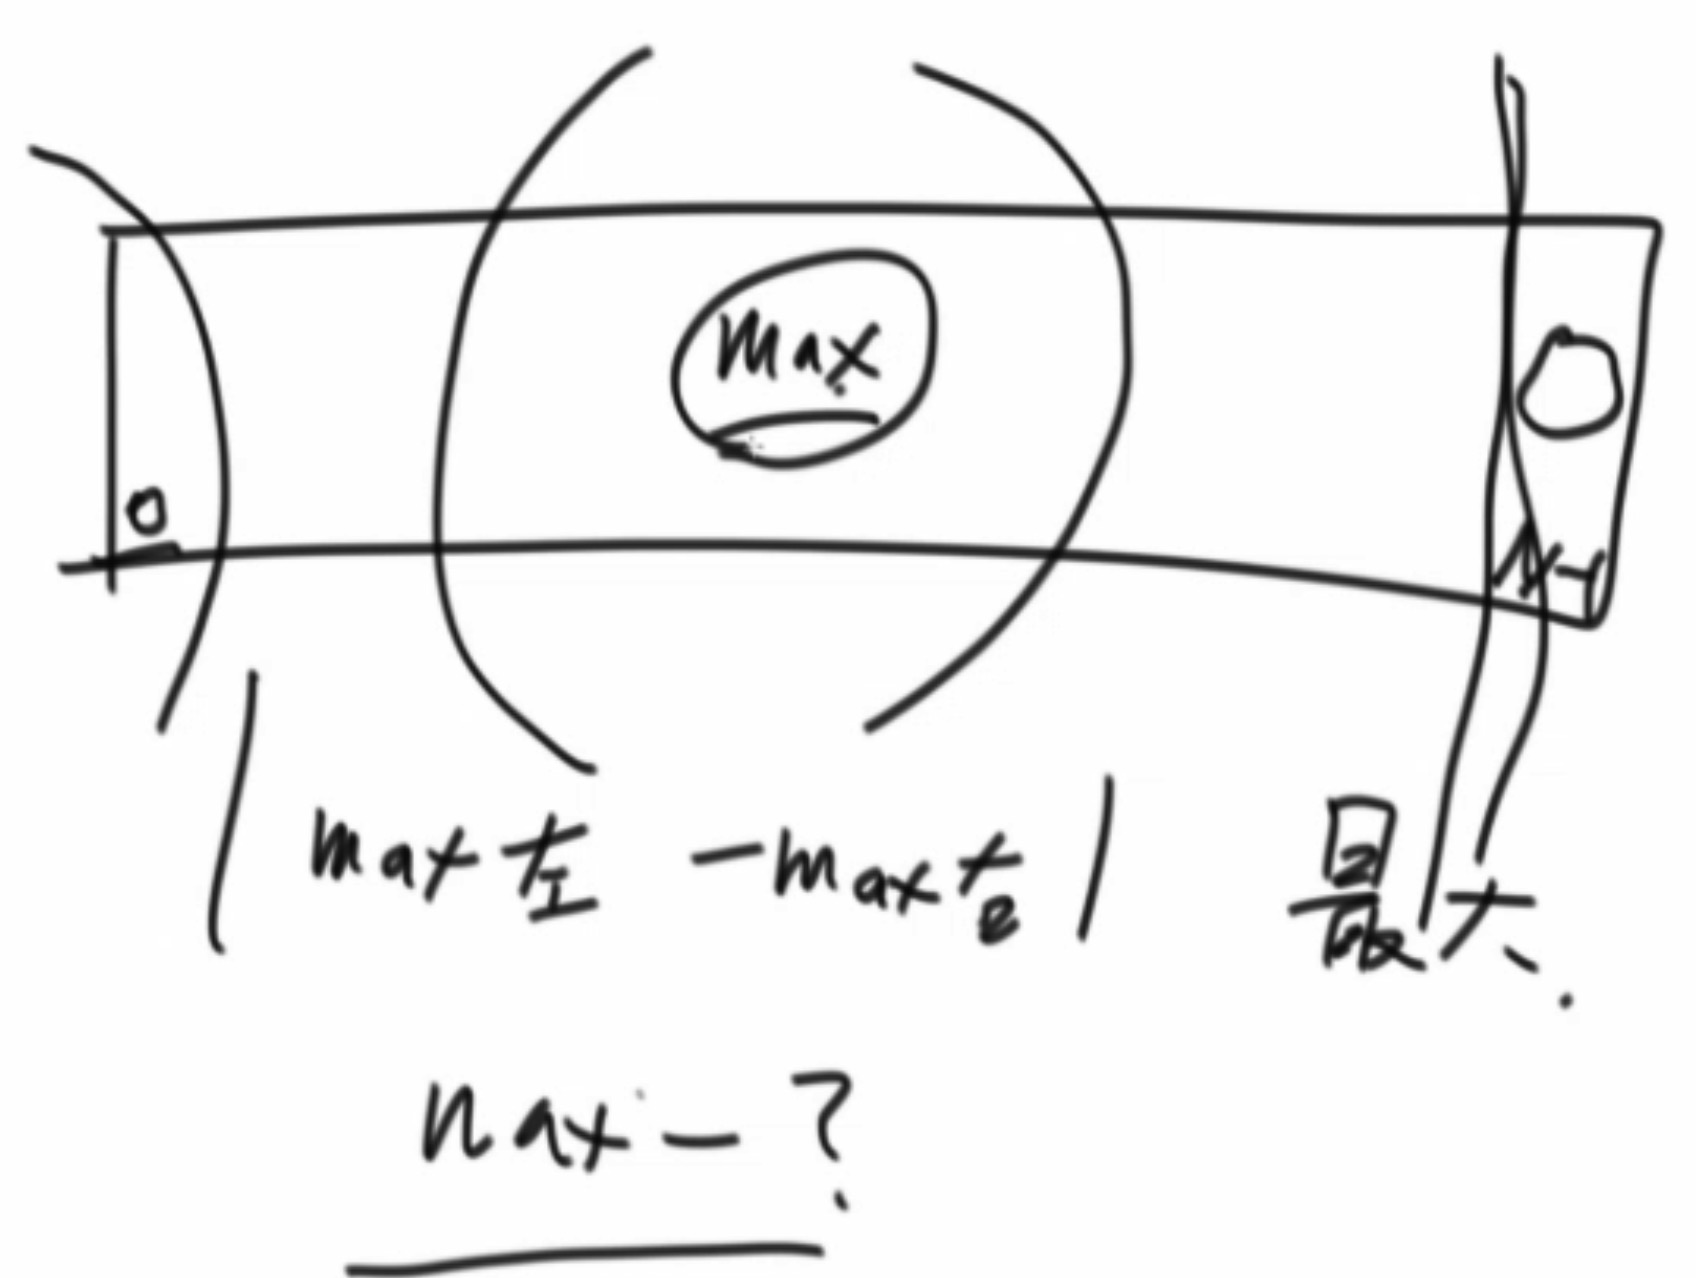 max
0
N-1
|max左 -max右| 最大.
max-?